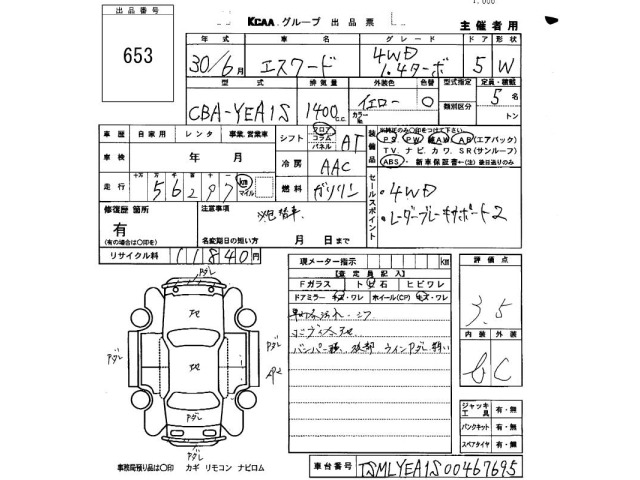 出品番号
653
KCAA グループ 出品票
主催者用
年式 車名 グレード ドア 形状
30/6月 エスクード 4WD 1.4ターボ 5 W
型式 排気量 外装色 色替 型式指定 定員・積載
CBA-YEA1S 1400 C.C. イエロー 類別区分 5名
カラーNo.
トン
車歴 自家用 レンタ 事業.営業車
シフト フロア コラム パネル AT
装備品
※純正のみ○印をつけて下さい
PS PW 純AW AB(エアバック)
TV.ナビ.カワ.SR(サンルーフ)
ABS・新車保証書←(注)後日送りのみ
車検 年 月
冷房 AAC
走行 十万 万 千 56297 km マイル
燃料 ガソリン
セールスポイント
・4WD
・レーダーブレーキサポート2
修復歴 箇所
有
(有の場合は○印を)
注意事項
※色替車.
名変期日の短い方 月 日まで
リサイクル料 11840円
現メーター指示 km
【査定員記入】
Fガラス トビ石 ヒビワレ
ドアミラー キズ・ワレ ホイール(CP) キズ・ワレ
評価点
3.5
内装 外装
6 C
アセ
アセ
Pダレ
Pダレ
Pダレ
Pダレ
Pダレ
AP2
ジャッキ工具 有・無
パンクキット 有・無
スペアタイヤ 有・無
事務局預り品は○印 カギ リモコン ナビロム
車台番号 TSMLYEA1S00467695